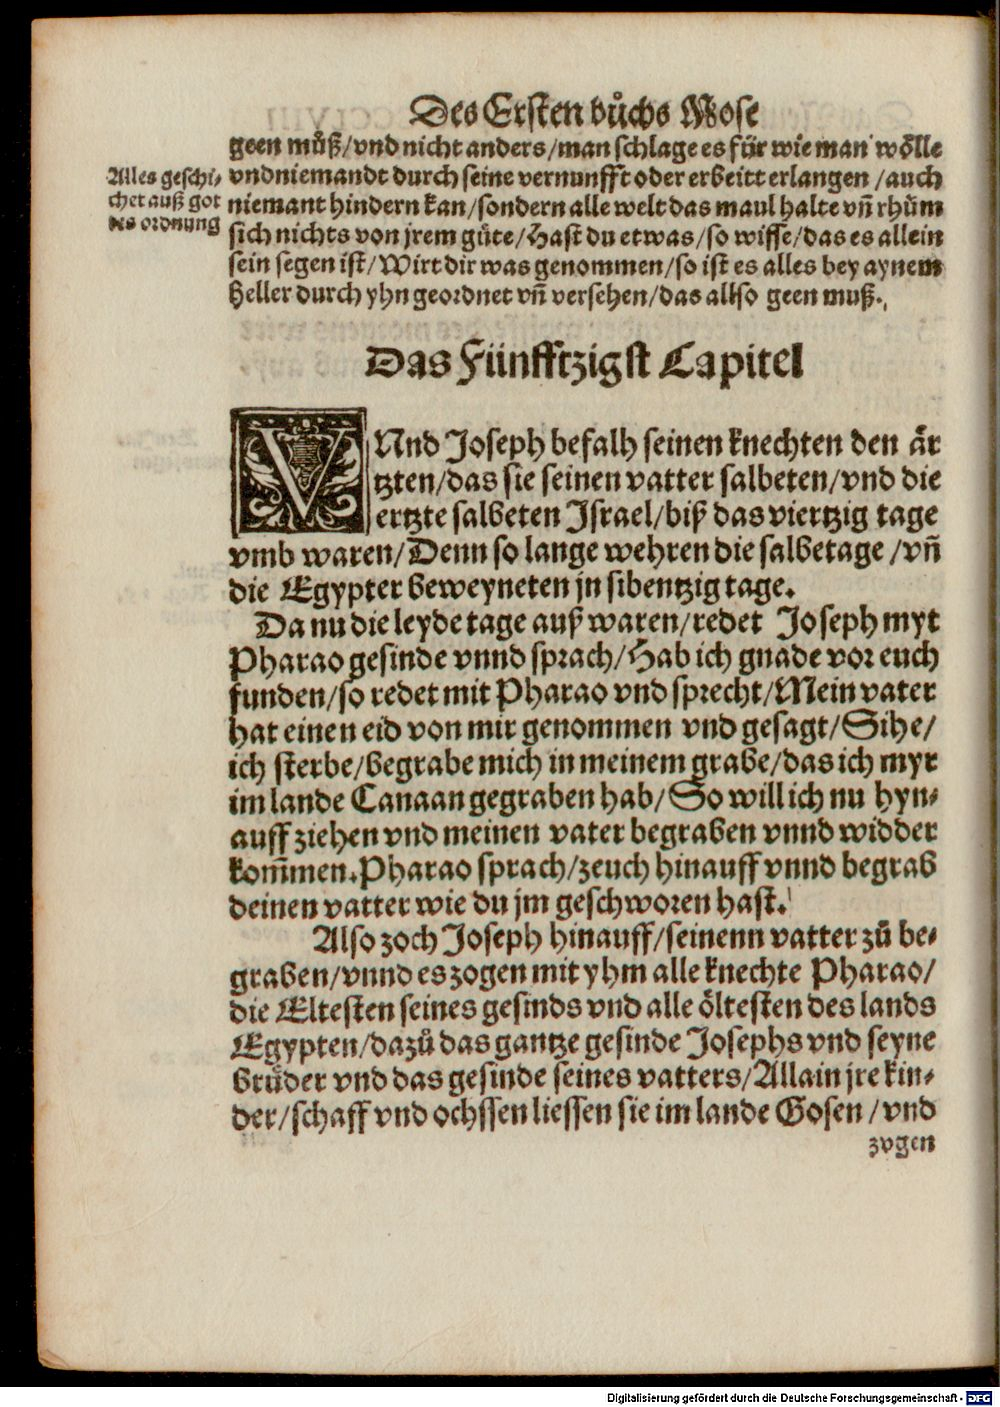 Des Ersten bůchs Mose
geen můß/vnd nicht anders/man schlage es für wie man wölle
Alles geschi-
vnd niemandt durch seine vernunfft oder erbeitt erlangen/auch
chet auß got
niemant hindern kan/sondern alle welt das maul halte vñ rhům
tes ordnung
sich nichts von jrem gůte/Hast du etwas/so wisse/das es allein
sein segen ist/Wirt dir was genommen/so ist es alles bey aynem
heller durch yhn geordnet vñ versehen/das allso geen muß.
Das Fünfftzigst Capitel
VNnd Joseph befalh seinen knechten den är
tzten/das sie seinen vatter salbeten/vnd die
ertzte salbeten Israel/biß das viertzig tage
vmb waren/Denn so lange wehren die salbetage/vñ
die Egypter beweyneten jn sibentzig tage.
Da nu die leydetage auß waren/redet Joseph myt
Pharao gesinde vnnd sprach/Hab ich gnade vor euch
funden/so redet mit Pharao vnd sprecht/Mein vater
hat einen eid von mir genommen vnd gesagt/Sihe/
ich sterbe/begrabe mich in meinem grabe/das ich myr
im lande Canaan gegraben hab/So will ich nu hyn-
auff ziehen vnd meinen vater begraben vnnd widder
kom̃men.Pharao sprach/zeuch hinauff vnnd begrab
deinen vatter wie du jm geschworen hast.
Also zoch Joseph hinauff/seinenn vatter zů be-
graben/vnnd es zogen mit yhm alle knechte Pharao/
die Eltesten seines gesinds vnd alle öltesten des lands
Egypten/dazů das gantze gesinde Josephs vnd seyne
brüder vnd das gesinde seines vatters/Allain jre kin-
der/schaff vnd ochssen liessen sie im lande Gosen/vnd
zogen
Digitalisierung gefördert durch die Deutsche Forschungsgemeinschaft - DFG